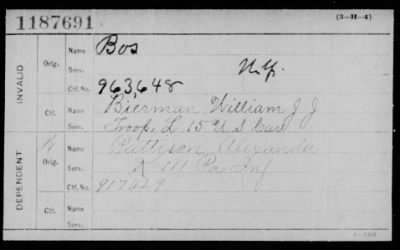 1187691 (3-H-4)
INVALID
Orig. Name Bos
Serv. N.Y.
Ctf. No. 963,648
Ctf. Name Bierman William J J
Serv. Troop L 15 U S Cav
DEPENDENT
Orig. Name Pattison, Alexander
Serv. 111 Pa. Inf
Ctf. No. 917429
Ctf. Name
Serv.